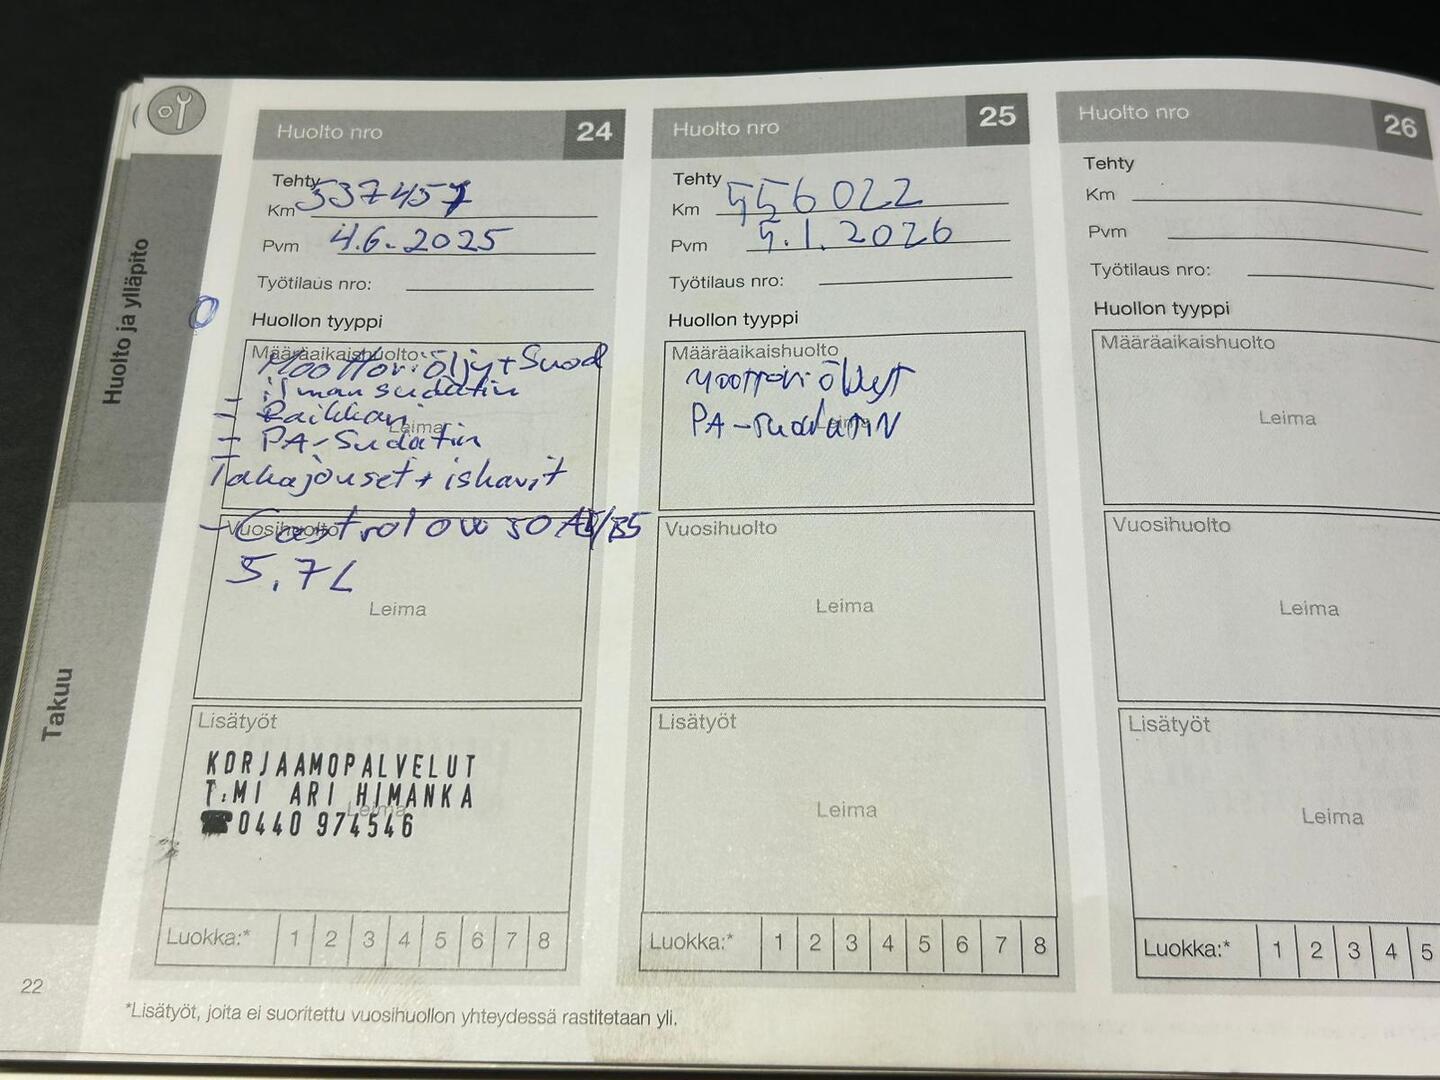 Huolto ja ylläpito
Takuu
22
Huolto nro 24
Tehty
Km 537457
Pvm 4.6.2025
Työtilaus nro:
Huollon tyyppi
Määräaikaishuolto:
Moottoriöljy + Suod
- ilmansudatin
- Raikkari
- PA-Sudatin
Takajouset + iskarit
Leima
Vuosihuolto
- Castrol 0W30 A5/B5
5.7L
Leima
Lisätyöt
KORJAAMOPALVELUT
T:MI ARI HIMANKA
☎0440 974546
Leima
Luokka:* 1 2 3 4 5 6 7 8
Huolto nro 25
Tehty
Km 556022
Pvm 5.1.2026
Työtilaus nro:
Huollon tyyppi
Määräaikaishuolto
PA-suodatin
Leima
Vuosihuolto
Leima
Lisätyöt
Leima
Luokka:* 1 2 3 4 5 6 7 8
Huolto nro 26
Tehty
Km
Pvm
Työtilaus nro:
Huollon tyyppi
Määräaikaishuolto
Leima
Vuosihuolto
Leima
Lisätyöt
Leima
Luokka:* 1 2 3 4 5
*Lisätyöt, joita ei suoritettu vuosihuollon yhteydessä rastitetaan yli.